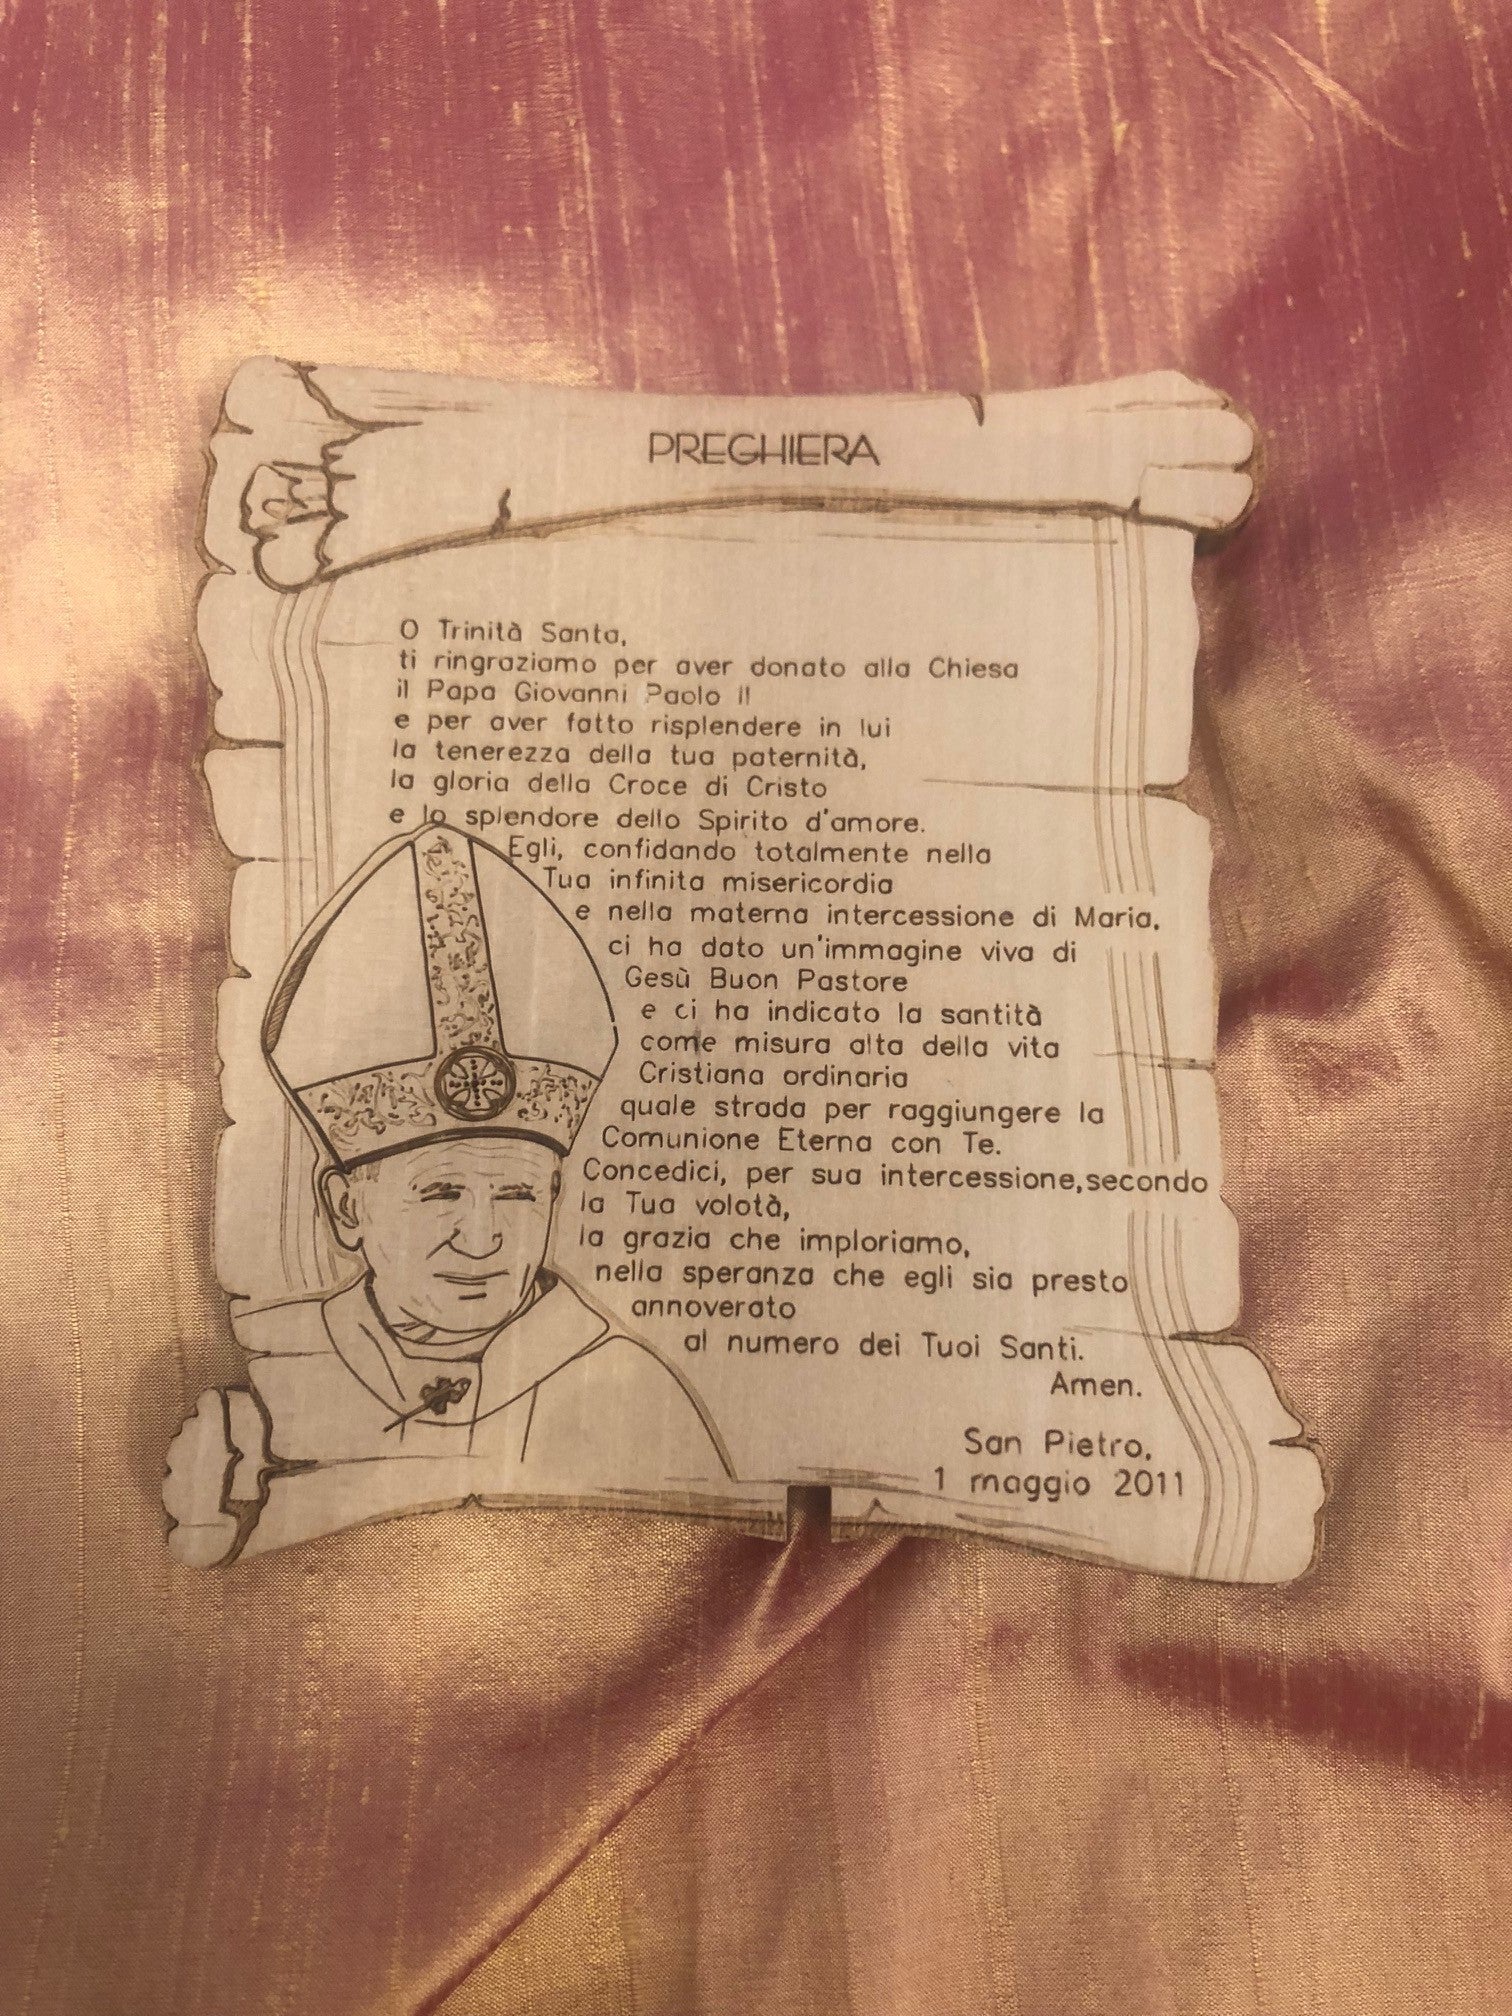 PREGHIERA
O Trinità Santa,
ti ringraziamo per aver donato alla Chiesa
il Papa Giovanni Paolo II
e per aver fatto risplendere in lui
la tenerezza della tua paternità,
la gloria della Croce di Cristo
e lo splendore dello Spirito d'amore.
Egli, confidando totalmente nella
Tua infinita misericordia
e nella materna intercessione di Maria,
ci ha dato un'immagine viva di
Gesù Buon Pastore
e ci ha indicato la santità
come misura alta della vita
Cristiana ordinaria
quale strada per raggiungere la
Comunione Eterna con Te.
Concedici, per sua intercessione,secondo
la Tua volotà,
la grazia che imploriamo,
nella speranza che egli sia presto
annoverato
al numero dei Tuoi Santi.
Amen.
San Pietro,
1 maggio 2011